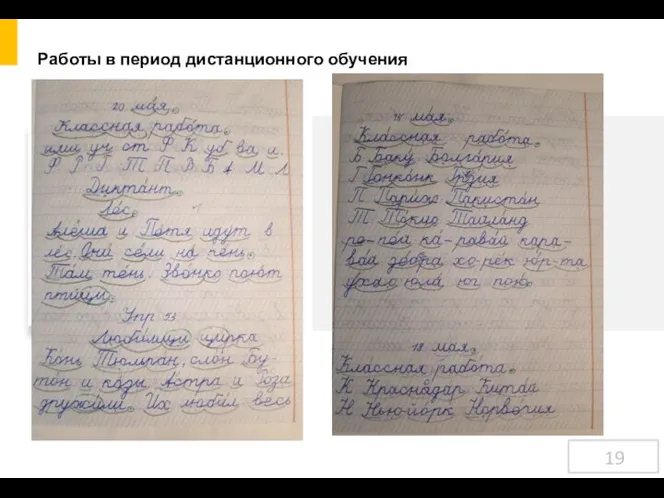 Работы в период дистанционного обучения
20 мая.
Классная работа.
или уч от Ф К уб ва и.
Ф Р Г Т П Р Б А М Л
Диктант.
Лес.
Алёша и Петя идут в
лес. Они сели на пень.
Там тень. Звонко поют
птицы.
Упр 53
Любимцы цирка
Конь Тюльпан, слон Бу-
тон и козы Астра и Роза
дружили. Их любил весь
мая.
Классная работа.
Б Баку Болгария
Г Гонконк Грузия
П Париж Пакистан
Т Токио Таиланд
ка-равай кара-
вай добра хо-рёк юр-та
ухаю юла юг пою.
18 мая.
Классная работа.
К Краснадар Китай
Н Нью-йорк Норвегия
19